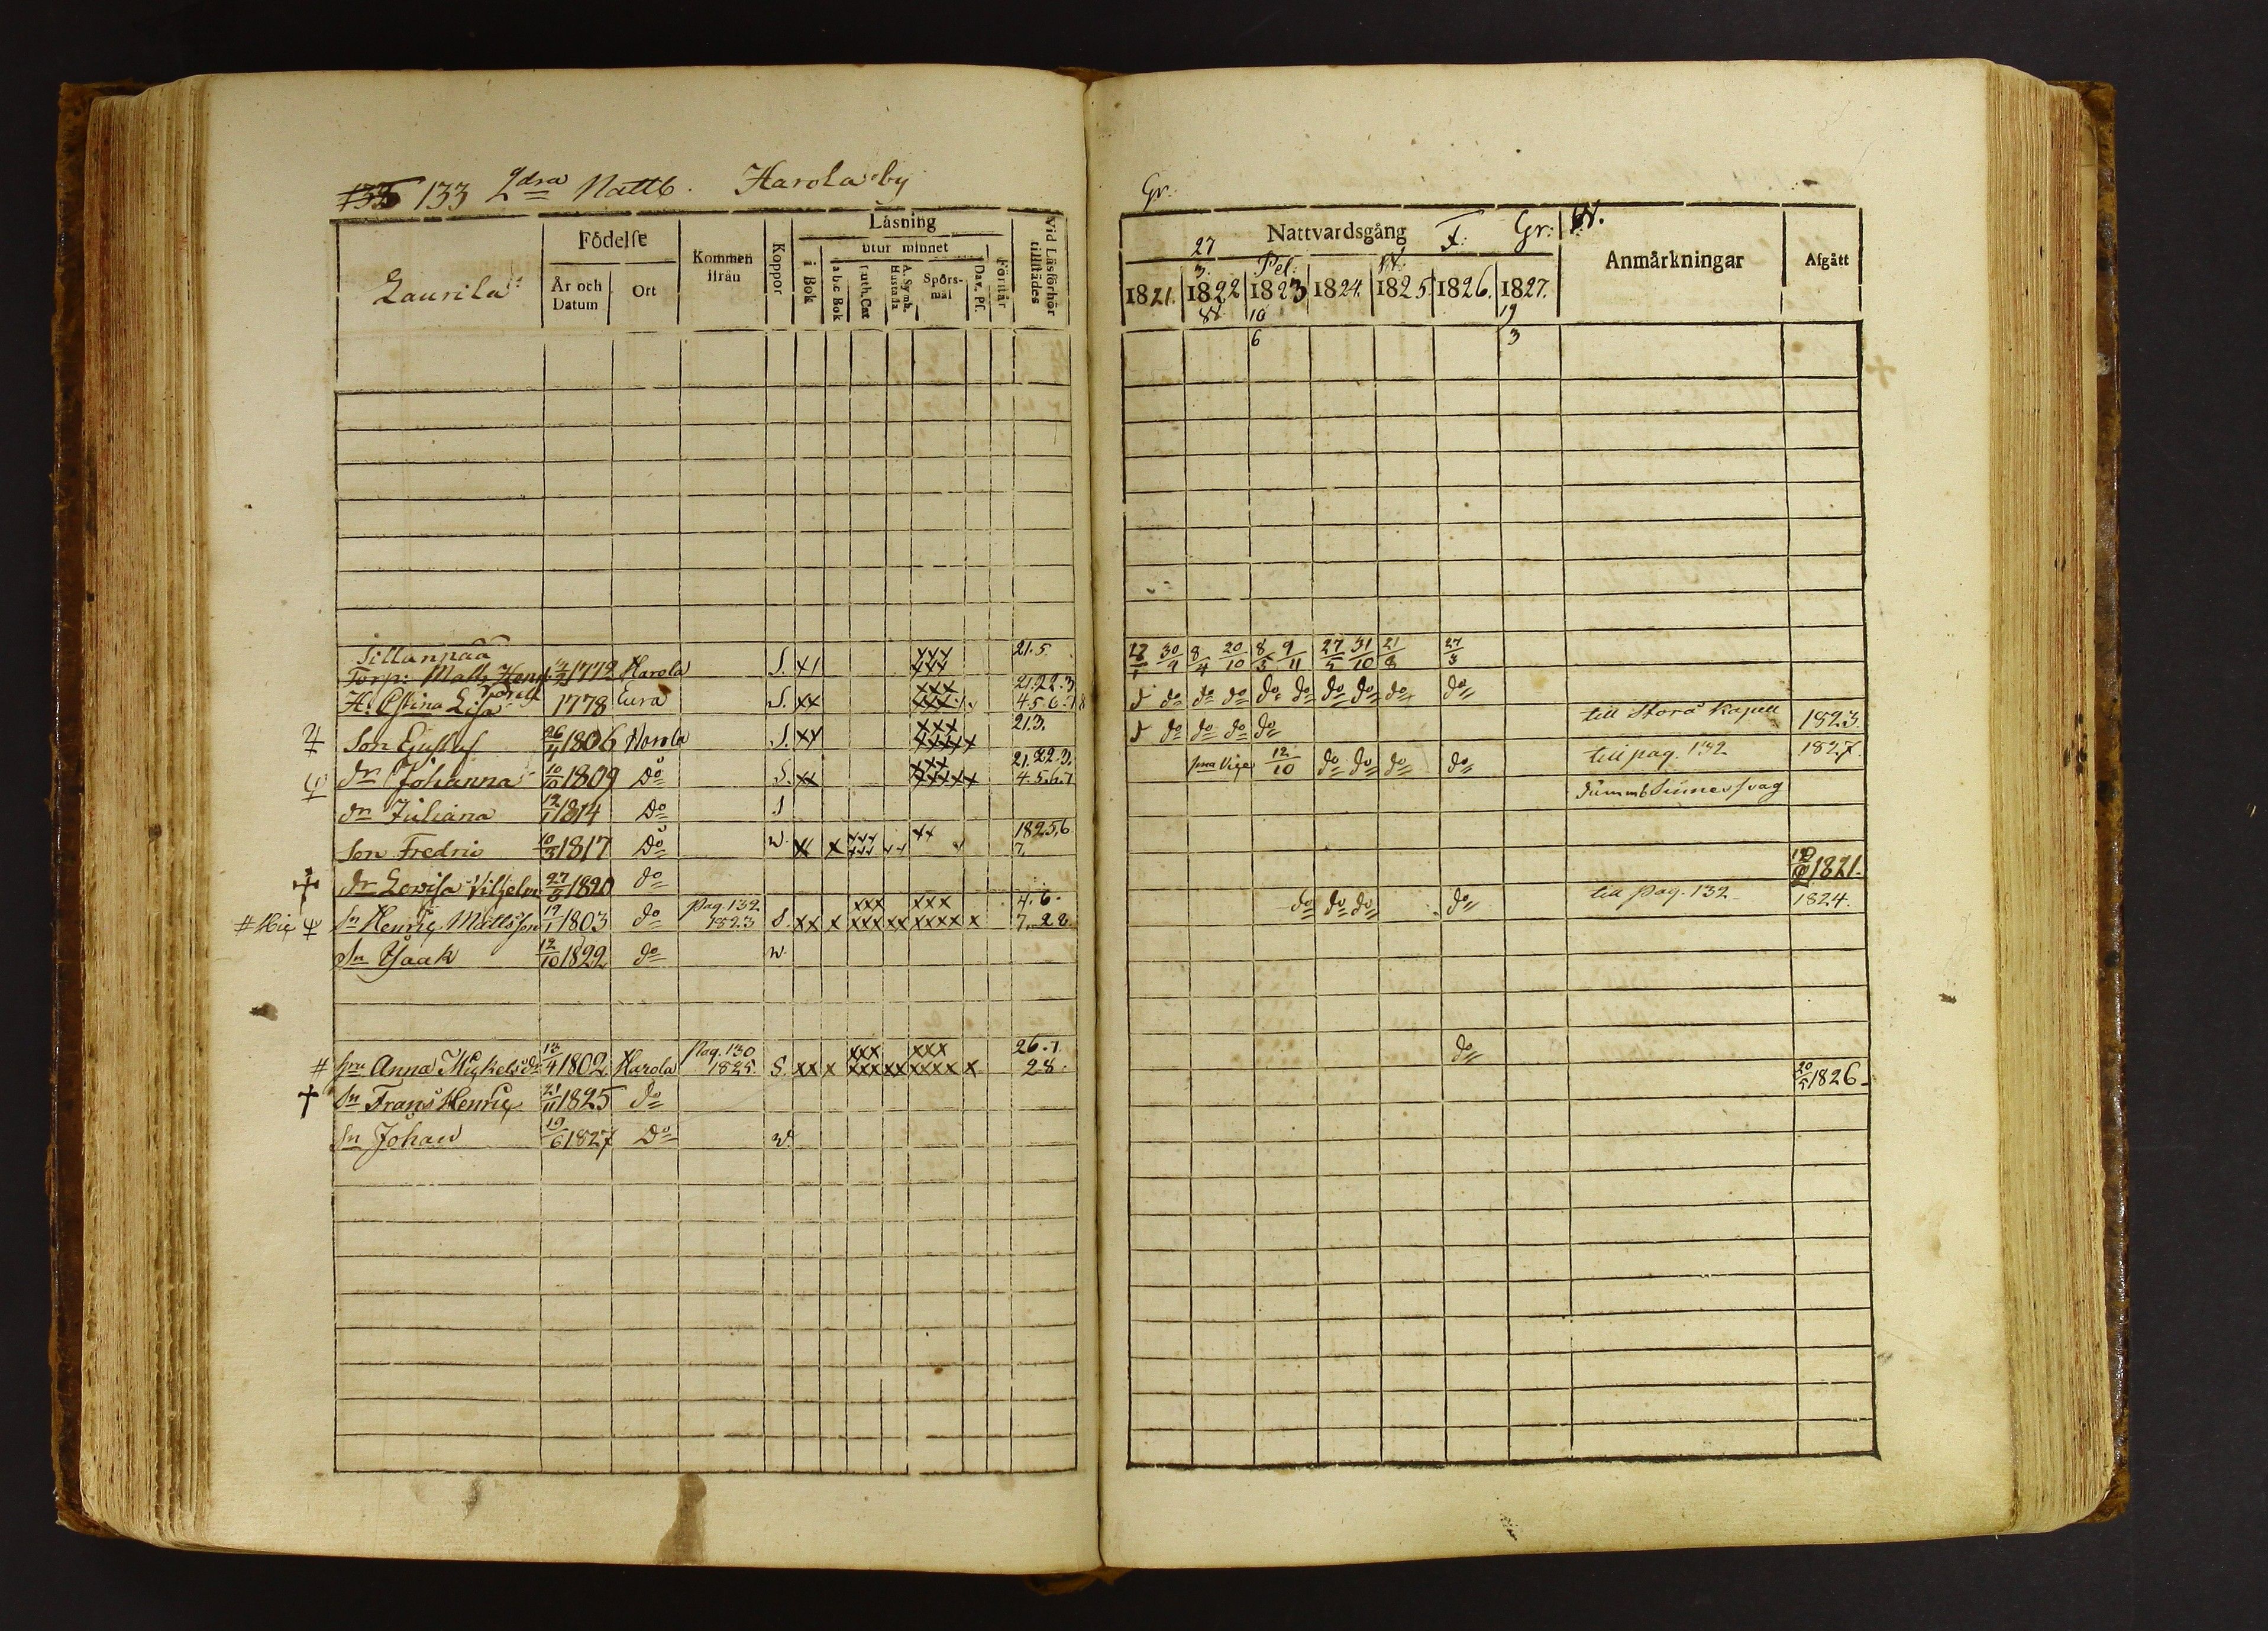 133 2dra Nattb. Harola by
Laurila
Födelse
År och Datum
Ort
Kommen ifrån
Koppor
Läsning
i Bok
utur minnet
a b c Bok
Luth. Cat
A. Symb. Hustafla
Spörsmål
Dav. Ps.
Förstår
Vid Läsförhör tillstädes
Sillanpää
Torp: Matts Henr 1772 Harola S. 21.5
H. Stina Lisa 1778 Eura S. xx 21.22.3 4.5.6.7.8
Son Gustaf 26/4 1806 Harola S. xx 21.3.
dr Johanna 10/10 1809 Do S. xx 21.22.3. 4.5.6.7
dr Juliana 12/1 1814 Do S
Son Fredric 10/3 1817 Do W. 1825,6 7.
dr Lovisa Vilhelm 27/8 1820 do
# Hic Sn Henric Mattsson 19/1 1803 do pag. 132 1823 S. xx x 4.6. 7.28
Sn Isaak 12/10 1822 do w.
# hu Anna Mickelsdr 13/4 1802 Harola pag. 130 1825 S. xx x 26.7 28.
† Sn Frans Henric 21/11 1825 do
Sn Johan 19/6 1827 Do w.
Gr.
Nattvardsgång F. Gr: W.
27 3. Pel:
1821. 1822 1823 1824. 1825 1826. 1827.
10 6
19 3
Anmärkningar
Afgått
30/9 8/4 20/10 8/5 9/11 27/5 31/10 21/8 27/3
do do do do do do do do do
do do do do till Storå Kapell 1823.
12/10 do do do do till pag. 132 1827.
dumm Sinnessvag
1821.
do do do do till pag. 132 1824.
do
20/5 1826